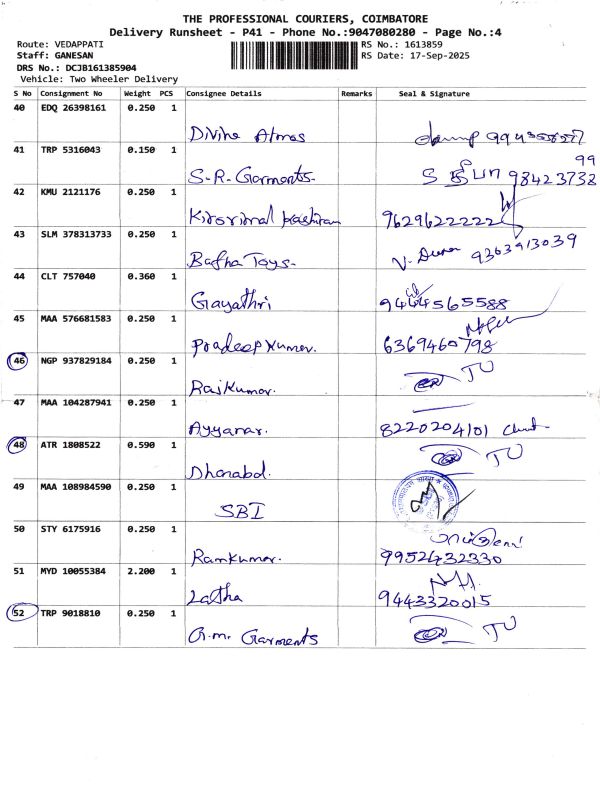 THE PROFESSIONAL COURIERS, COIMBATORE
Delivery Runsheet - P41 - Phone No.:9047080280 - Page No.:4
Route: VEDAPPATI RS No.: 1613859
Staff: GANESAN RS Date: 17-Sep-2025
DRS No.: DCJB161385904
Vehicle: Two Wheeler Delivery
S No Consignment No Weight PCS Consignee Details Remarks Seal & Signature
40 EDQ 26398161 0.250 1
Divine Atmos
41 TRP 5316043 0.150 1 99
S-R-Garments- 98423732
42 KMU 2121176 0.250 1
9629622222
43 SLM 378313733 0.250 1
Bafna Toys- 9363913039
44 CLT 757040 0.360 1
Gayathri 9444565588
45 MAA 576681583 0.250 1
Pradeep Kumar. 6369460798
46 NGP 937829184 0.250 1 TU
Rajkumar.
47 MAA 104287941 0.250 1
Ayyanar. 8220204101
48 ATR 1808522 0.590 1 TU
Dhanabal.
49 MAA 108984590 0.250 1
SBI
50 STY 6175916 0.250 1
Ramkumar. 9952432330
51 MYD 10055384 2.200 1
Latha 9443320015
52 TRP 9018810 0.250 1 TU
G.m. Garments